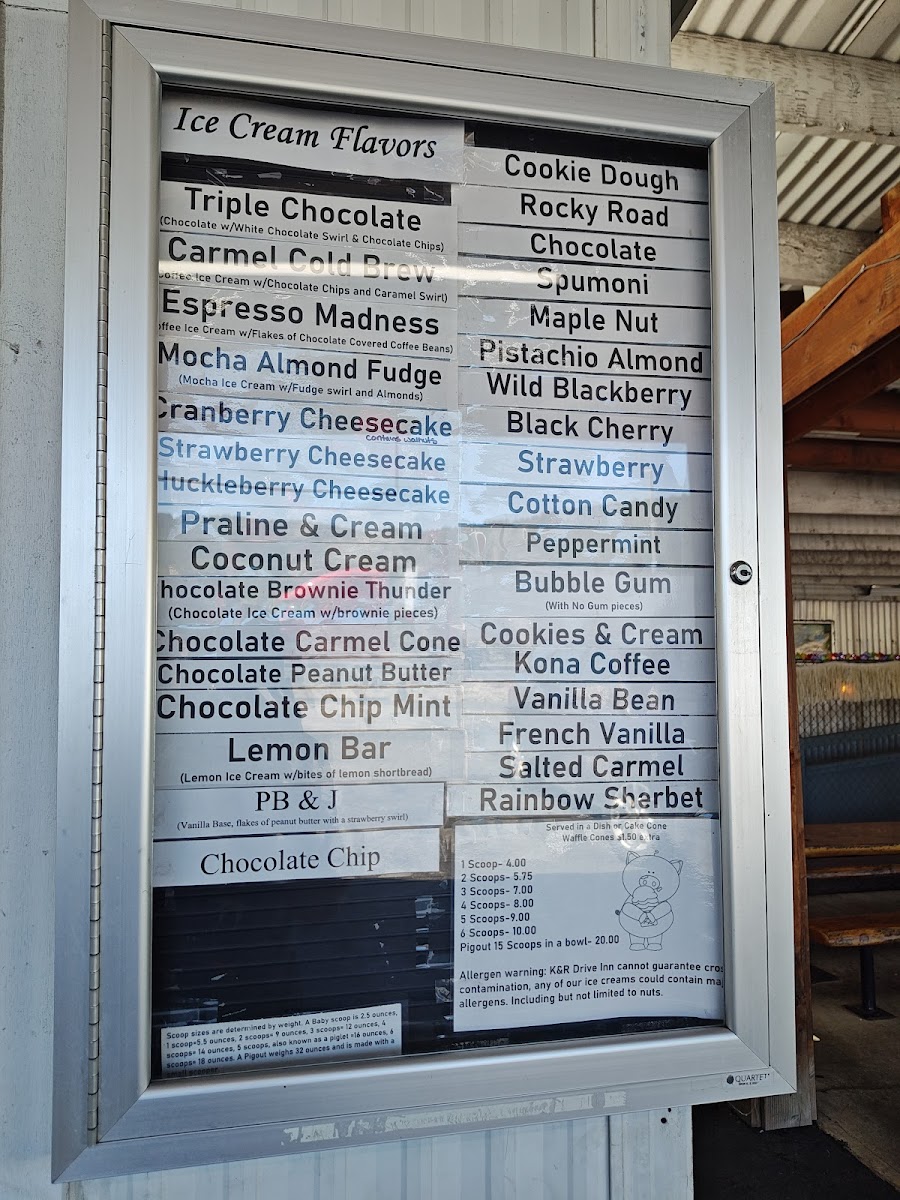 Ice Cream Flavors
Triple Chocolate
(Chocolate w/White Chocolate Swirl & Chocolate Chips)
Carmel Cold Brew
Ice Cream w/Chocolate Chips and Caramel Swirl)
Espresso Madness
Ice Cream w/Flakes of Chocolate Covered Coffee Beans)
Mocha Almond Fudge
(Mocha Ice Cream w/Fudge swirl and Almonds)
Cranberry Cheesecake
contains walnuts
Strawberry Cheesecake
Huckleberry Cheesecake
Praline & Cream
Coconut Cream
hocolate Brownie Thunder
(Chocolate Ice Cream w/brownie pieces)
Chocolate Carmel Cone
Chocolate Peanut Butter
Chocolate Chip Mint
Lemon Bar
(Lemon Ice Cream w/bites of lemon shortbread)
PB & J
(Vanilla Base, flakes of peanut butter with a strawberry swirl)
Chocolate Chip
Scoop sizes are determined by weight. A Baby scoop is 2.5 ounces,
1 scoop=5.5 ounces, 2 scoops= 9 ounces, 3 scoops= 12 ounces, 4
scoops= 14 ounces, 5 scoops, also known as a piglet =16 ounces, 6
scoops= 18 ounces. A Pigout weighs 32 ounces and is made with a
small scooper.
Cookie Dough
Rocky Road
Chocolate
Spumoni
Maple Nut
Pistachio Almond
Wild Blackberry
Black Cherry
Strawberry
Cotton Candy
Peppermint
Bubble Gum
(With No Gum pieces)
Cookies & Cream
Kona Coffee
Vanilla Bean
French Vanilla
Salted Carmel
Rainbow Sherbet
Served in a Dish or Cake Cone
Waffle Cones $1.50 extra
1 Scoop- 4.00
2 Scoops- 5.75
3 Scoops- 7.00
4 Scoops- 8.00
5 Scoops-9.00
6 Scoops- 10.00
Pigout 15 Scoops in a bowl- 20.00
Allergen warning: K&R Drive Inn cannot guarantee cros
contamination, any of our ice creams could contain ma
allergens. Including but not limited to nuts.
QUARTET